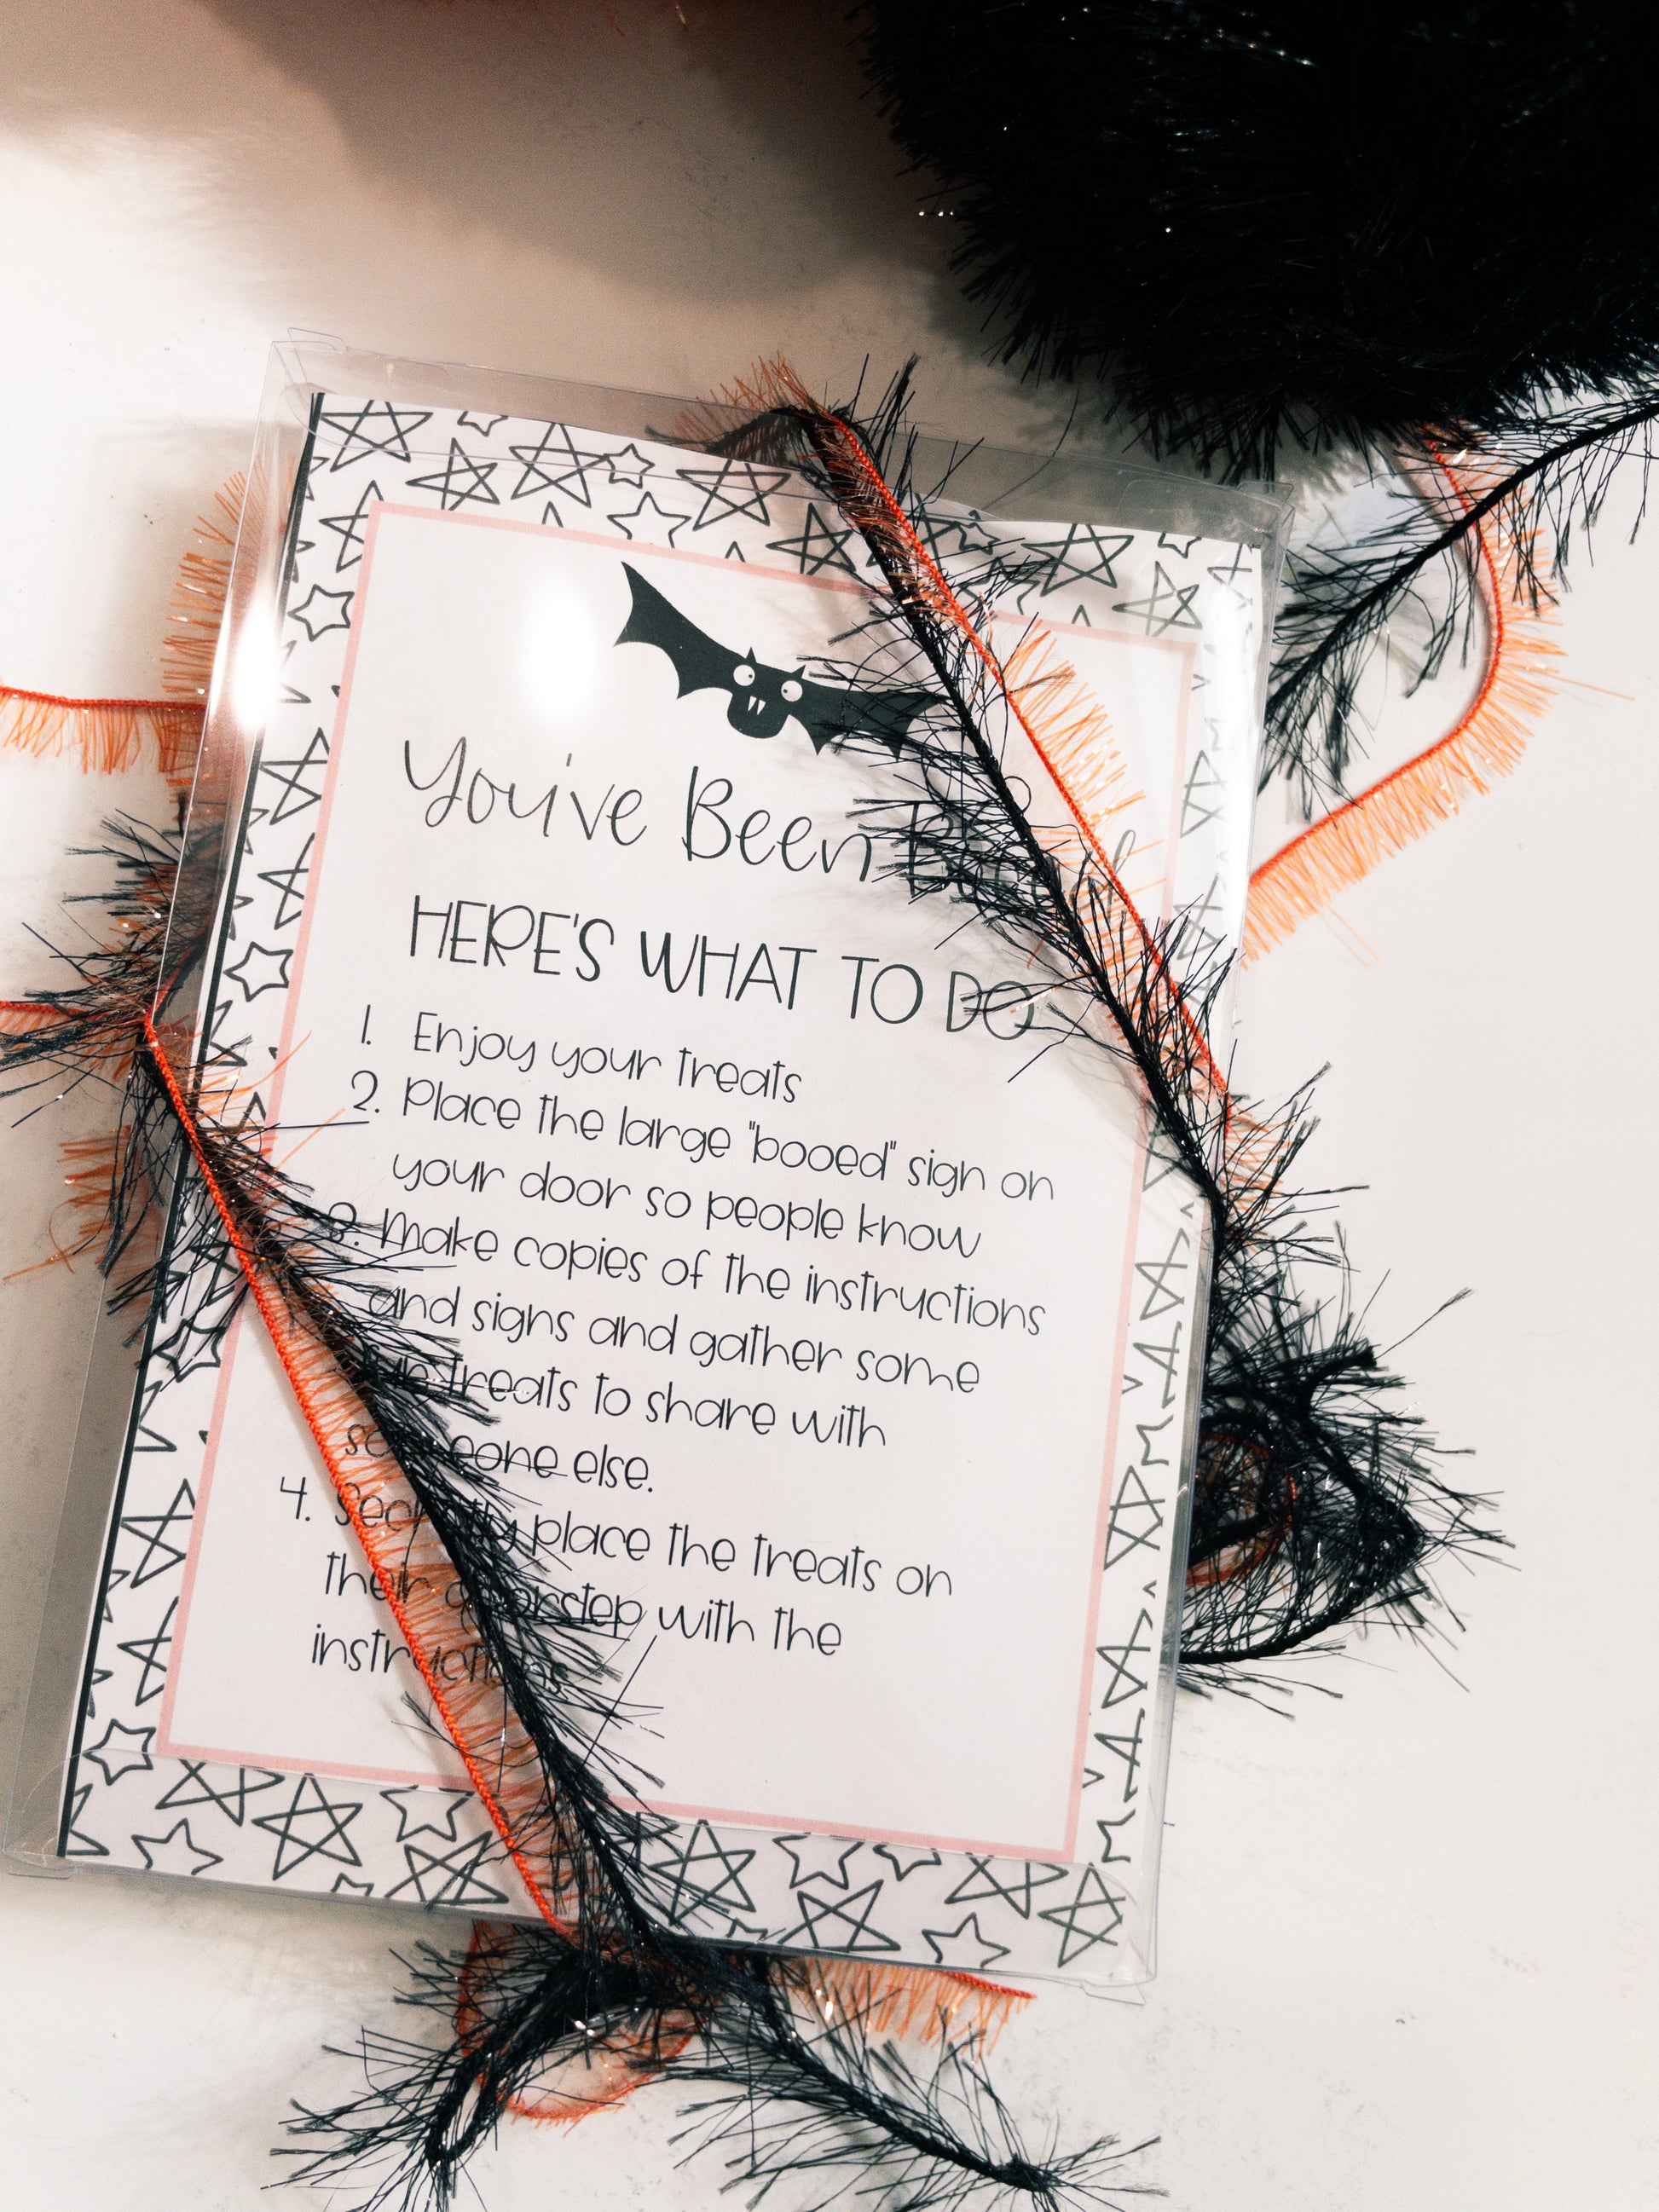 You've Been
HERE'S WHAT TO DO
1. Enjoy your treats
2. Place the large "booed" sign on
your door so people know
3. Make copies of the instructions
and signs and gather some
treats to share with
someone else.
4. Secretly place the treats on
their doorstep with the
instructions